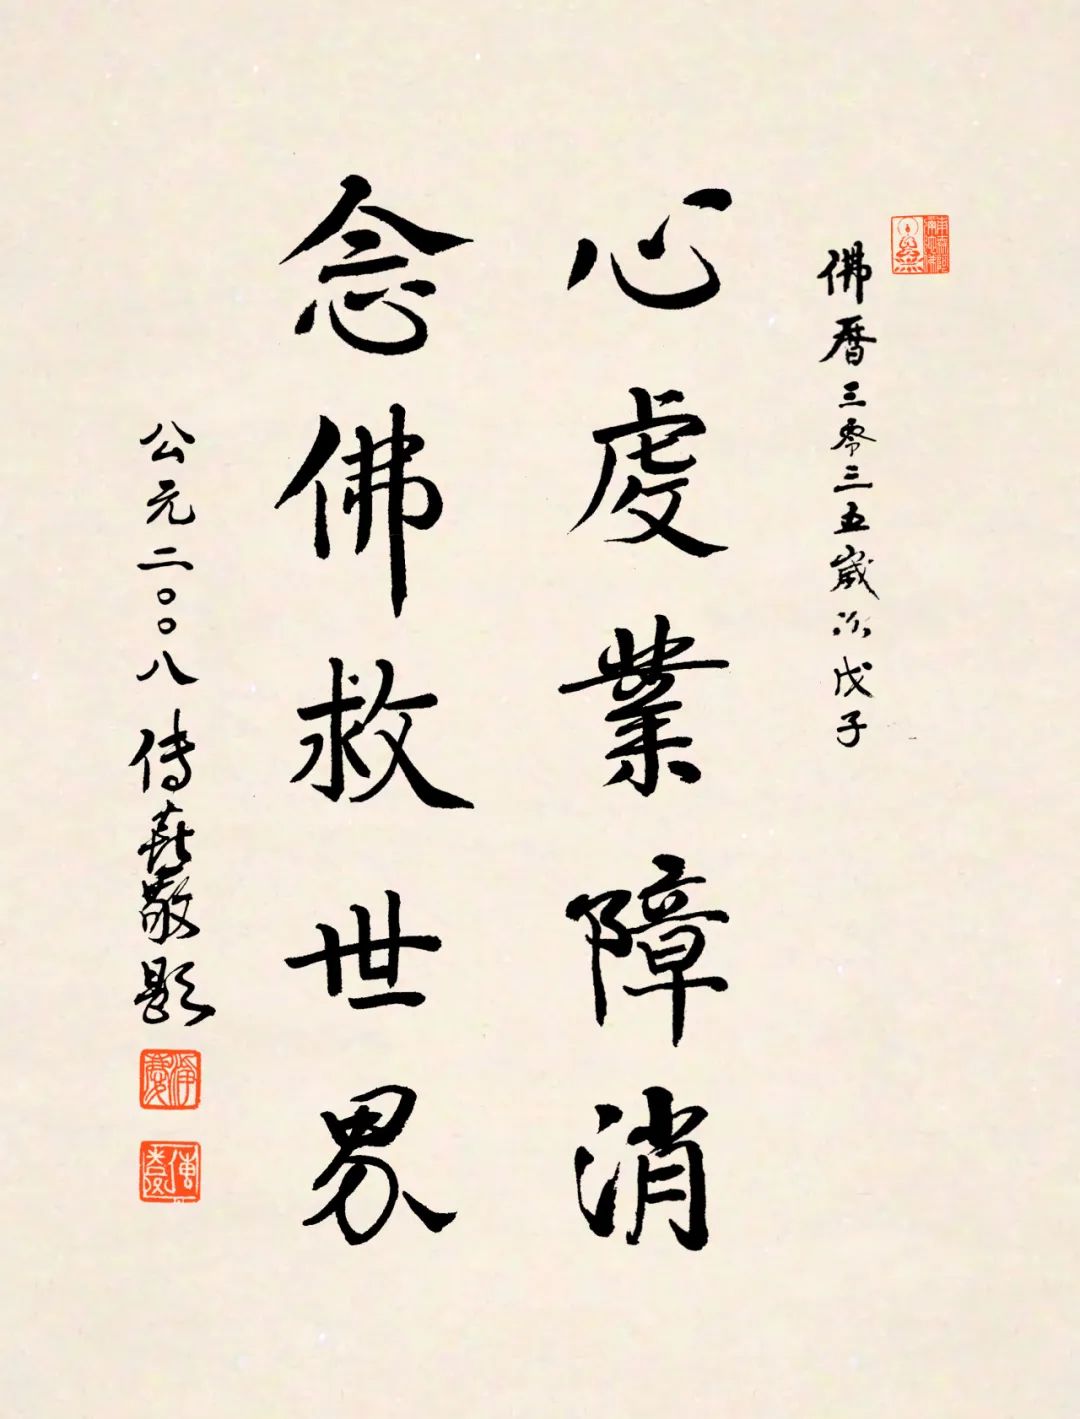 佛曆三零三五歲次戊子
心虔業障消
念佛救世界
公元二〇〇八傳喜敬題
傳喜